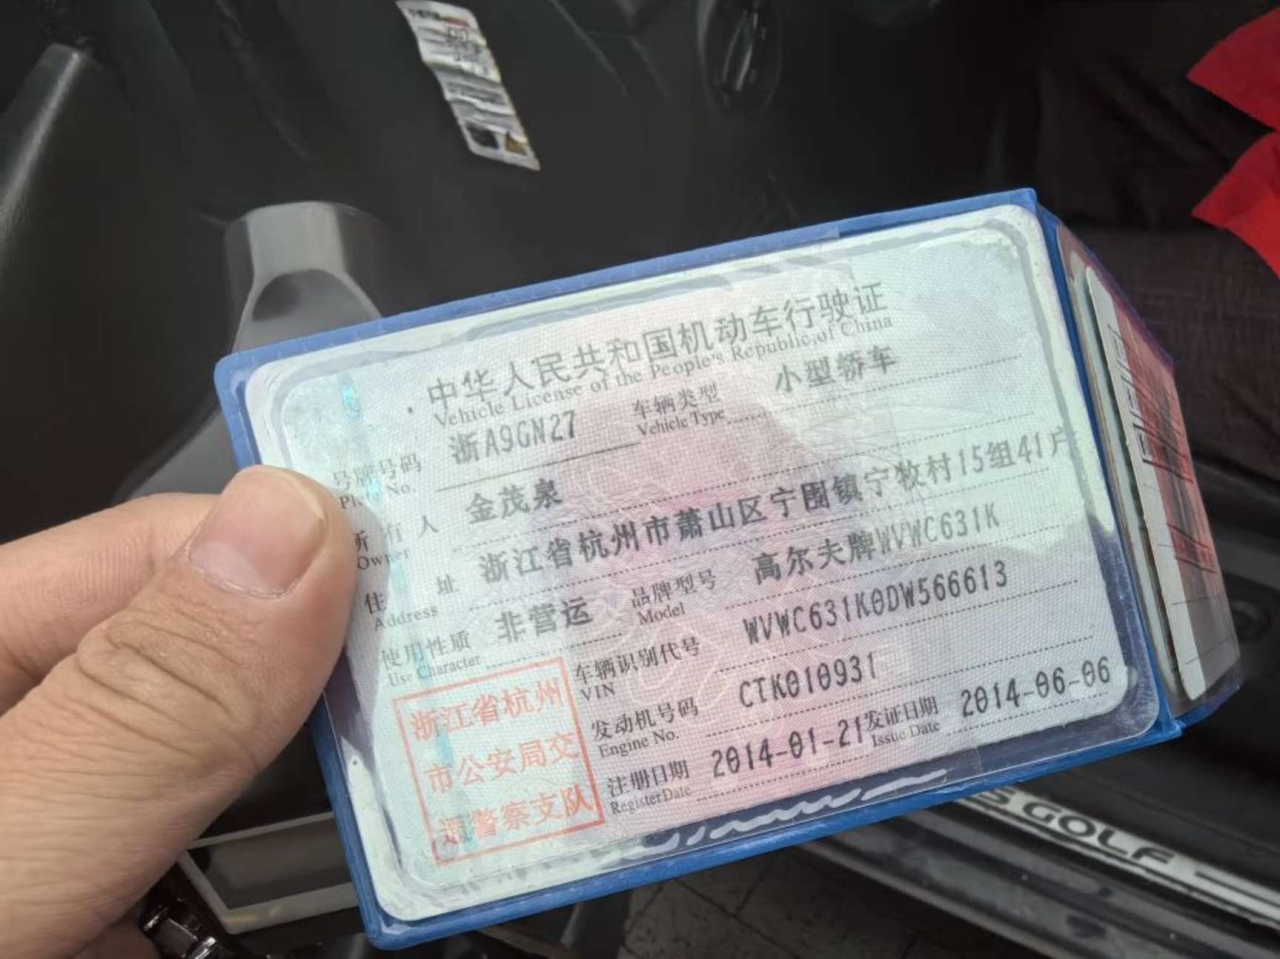 中华人民共和国机动车行驶证
Vehicle License of the People's Republic of China
号牌号码 浙A9GN27 车辆类型 小型轿车
Plate No. Vehicle Type
所有人 金茂泉
Owner
住址 浙江省杭州市萧山区宁围镇宁牧村15组41户
Address
使用性质 非营运 品牌型号 高尔夫牌WVWC631K
Use Character Model
车辆识别代号 WVWC631K0DW566613
VIN
发动机号码 CTK010931
Engine No.
注册日期 2014-01-21 发证日期 2014-06-06
Register Date Issue Date
浙江省杭州
市公安局交
通警察支队
GOLF